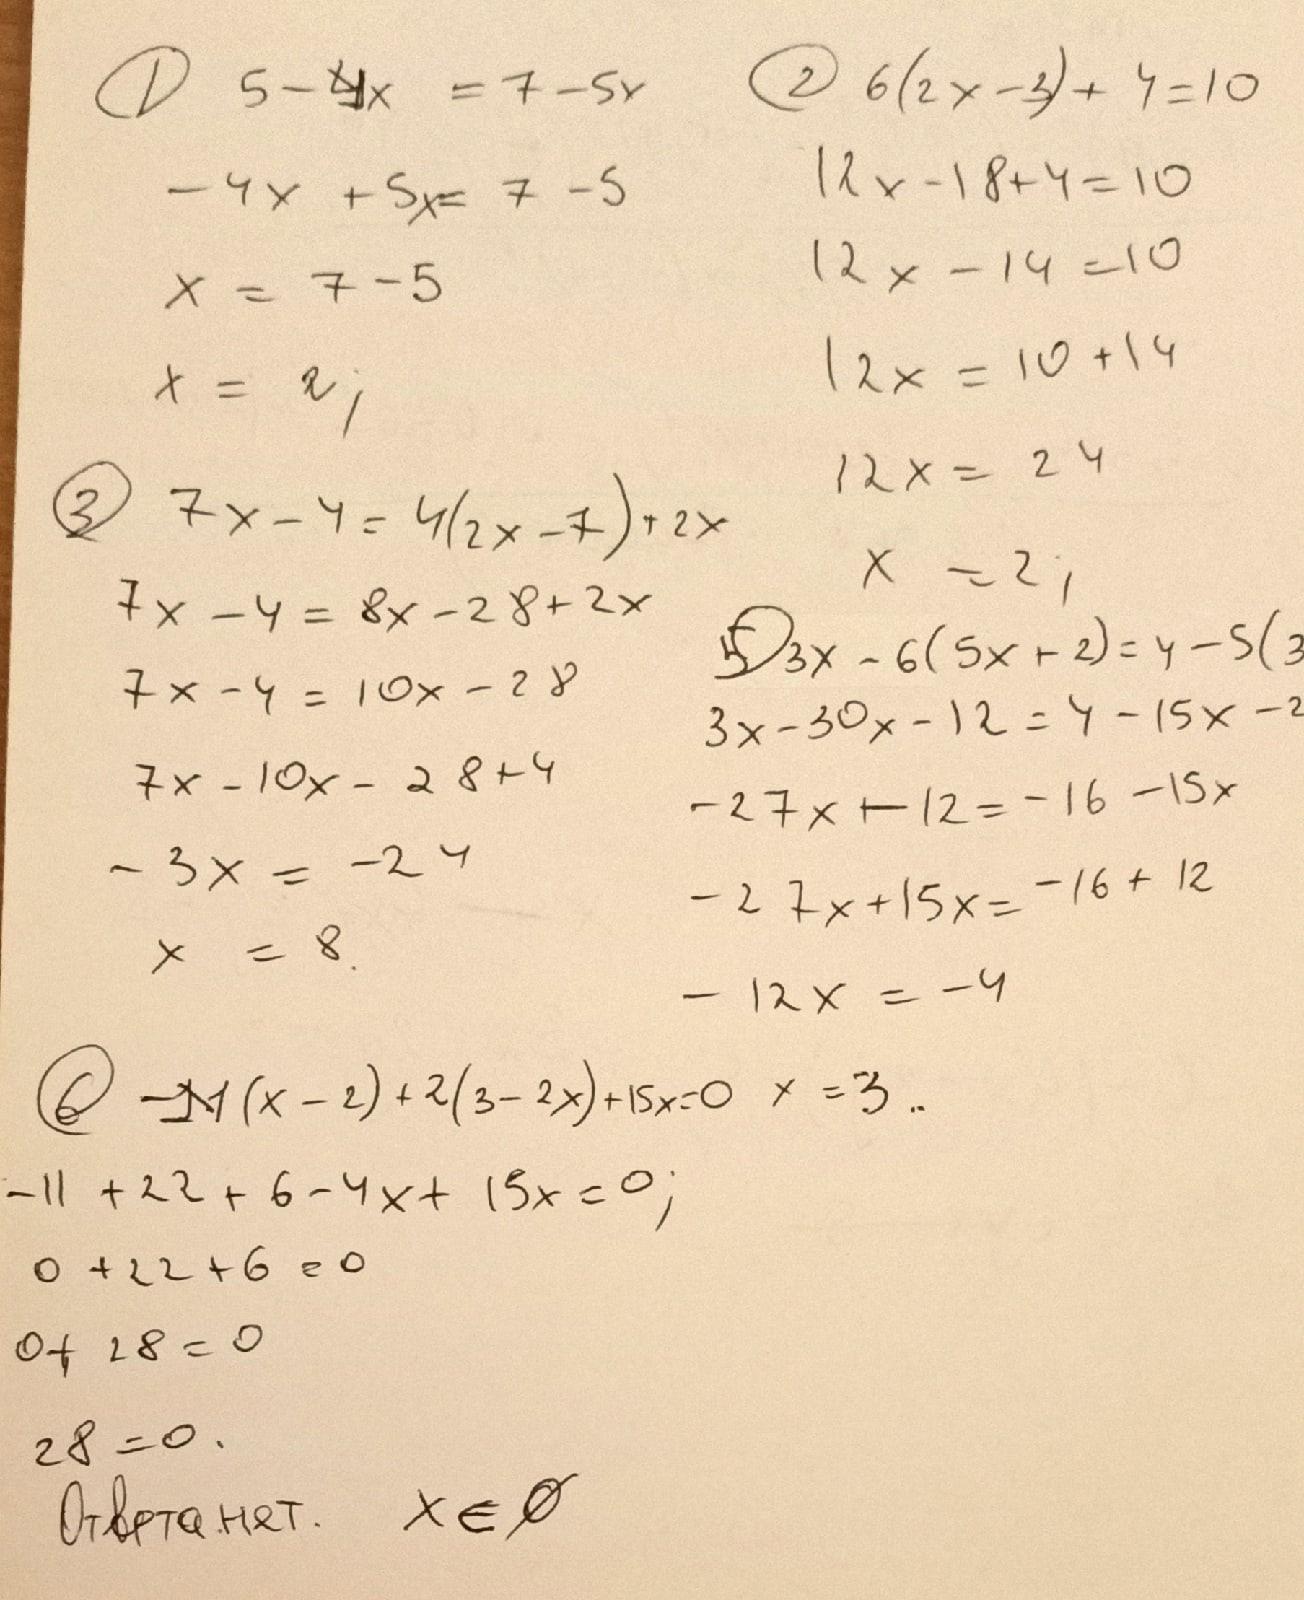 ① 5-4x = 7-5x
-4x +5x= 7-5
x = 7-5
x = 2;
② 6(2x-3)+4=10
12x-18+4=10
12x-14=10
12x = 10+14
12x = 24
x = 2;
③ 7x-4= 4(2x-7)+2x
7x-4 = 8x-28+2x
7x-4 = 10x-28
7x-10x- 28+4
-3x = -24
x = 8.
5) 3x-6(5x+2)=4-5(3
3x-30x-12=4-15x-2
-27x-12=-16-15x
-27x+15x=-16+12
-12x = -4
x = 3..
⑥ -11(x-2)+2(3-2x)+15x=0
-11+22+6-4x+15x=0;
0+22+6=0
0+28=0
28=0.
Ответа нет. x∈∅